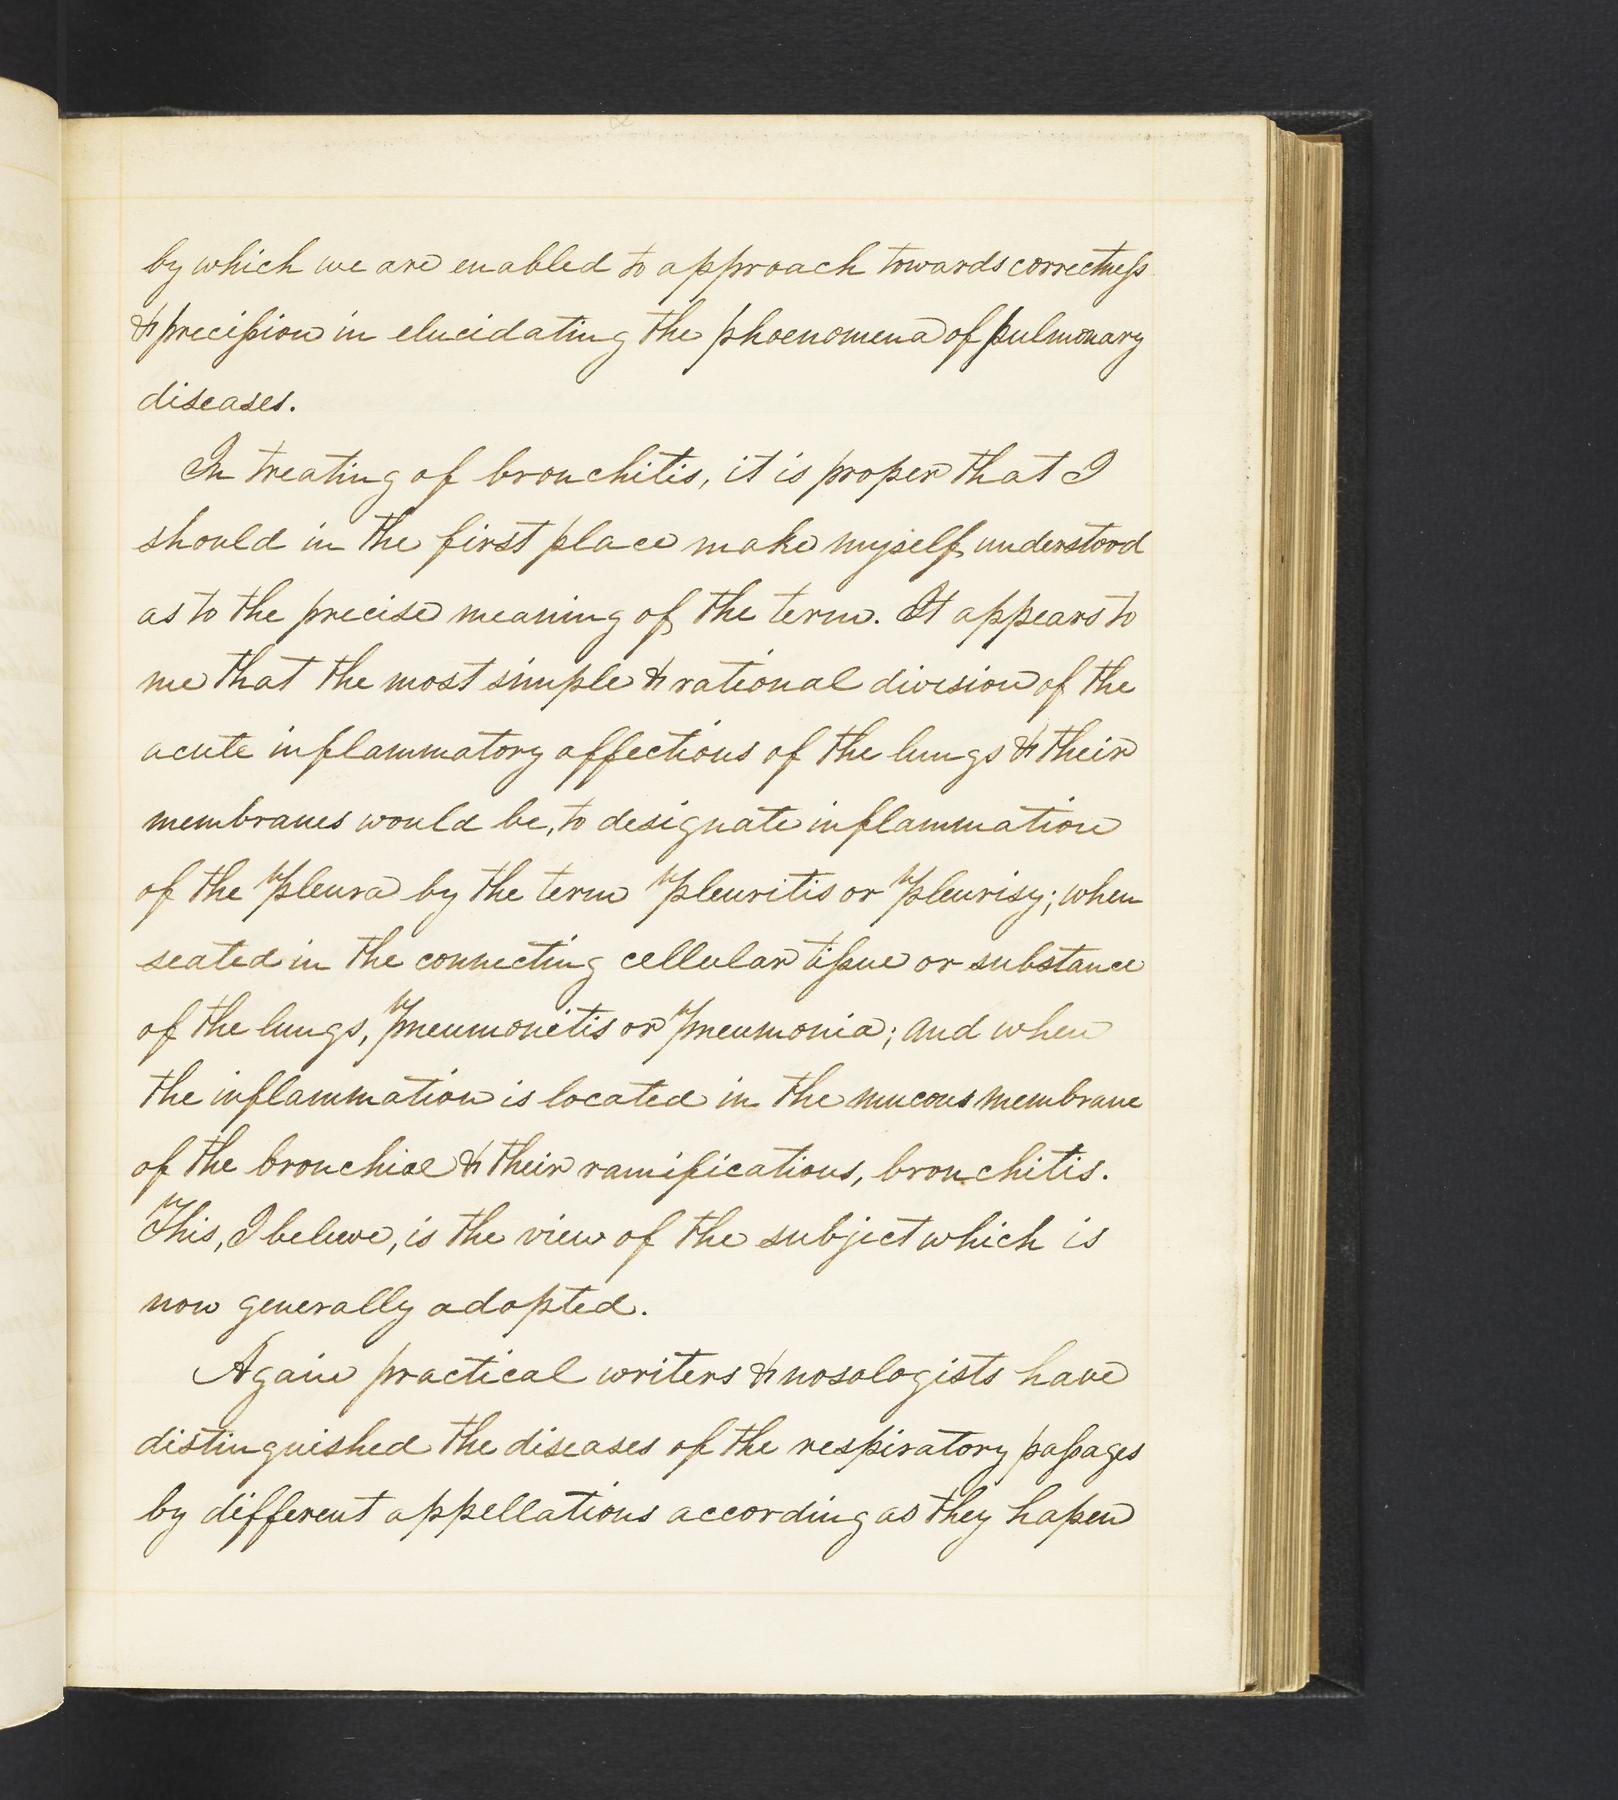 by which we are enabled to approach towards correctness
& precission in elucidating the phoenomena of pulmonary
diseases.
In treating of bronchitis, it is proper that I
should in the first place make myself understood
as to the precise meaning of the term. It appears to
me that the most simple & rational division of the
acute inflammatory affections of the lungs & their
membranes would be, to designate inflammation
of the "pleura by the term "pleuritis or "pleurisy; when
seated in the connecting cellular tissue or substance
of the lungs, "pneumonitis or "pneumonia; and when
the inflammation is located in the mucous membrane
of the bronchiae & their ramifications, bronchitis.
"This, I believe, is the view of the subject which is
now generally adopted.
Again practical writers & nosologists have
distinguished the diseases of the respiratory passages
by different appellations according as they hapen